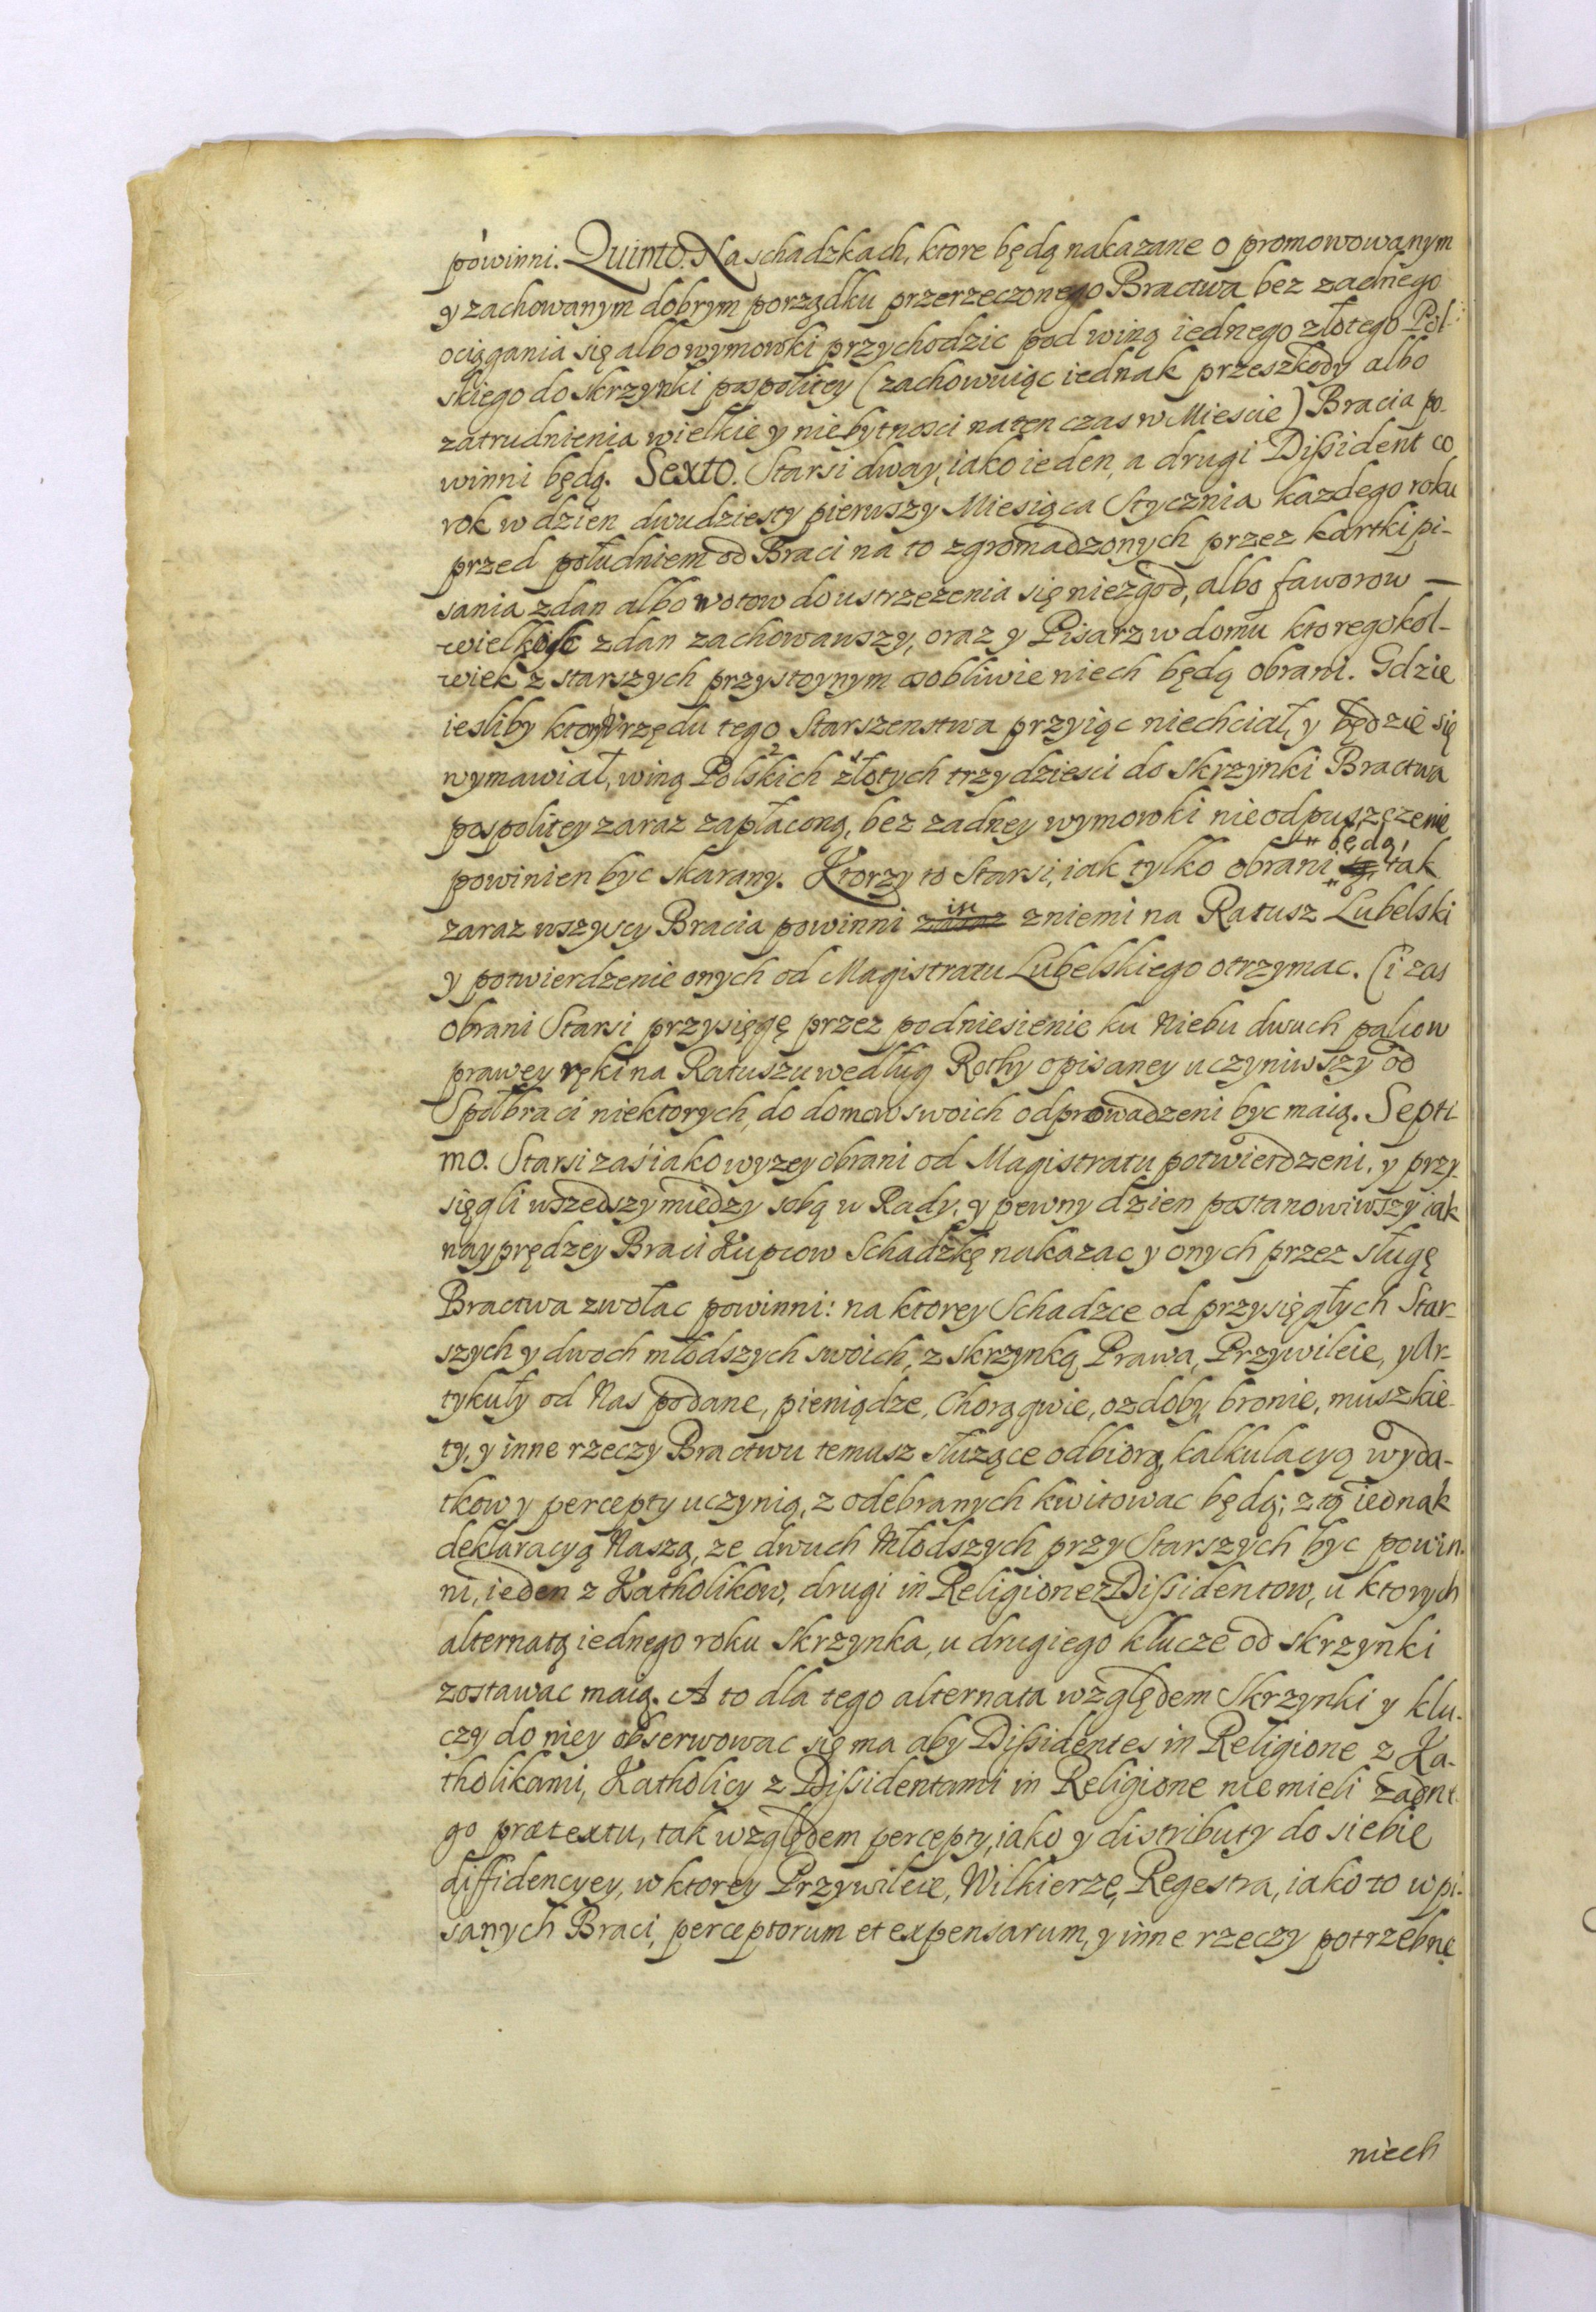 powinni. Quinto. Na schadzkach, ktore będą nakazane o promowowanym
y zachowanym dobrym porządku przerzeczonego Bractwa bez zadnego
ociągania się albo wymowki przychodzic pod winą iednego złotego Pol-
skiego do skrzynki pospolitey (zachowuiąc iednak przeszkody albo
zatrudnienia wielkie y niebytnosci na ten czas w Miescie) Bracia po-
winni będą. Sexto. Starsi dway, iako ieden, a drugi Dissident co
rok w dzien dwudziesty pierwszy Miesiąca Stycznia kazdego roku
przed południem od Braci na to zgromadzonych przez kartki pi-
sania zdan albo wotow do ustrzezenia się niezgod, albo faworow —
wielkość zdan zachowawszy, oraz y Pisarz w domu ktoregokol-
wiek z starszych przystoynym osobliwie niech będą obrani. Gdzie
iesliby ktory Urzędu tego Starszenstwa przyiąc niechciał, y będzie się
wymawiał, winą Polskich 2 złotych 1 trzydziesci do Skrzynki Bractwa
pospolitey zaraz zapłaconą, bez zadney wymowki nieodpuszczenie
powinien byc skarany. Ktorzy to Starsi, iak tylko obrani są będą, tak
zaraz wszyscy Bracia powinni zaraz isc zniemi na Ratusz Lubelski
y potwierdzenie onych od Magistratu Lubelskiego otrzymac. Ci zas
obrani Starsi przysięgę przez podniesienie ku Niebu dwuch palcow
prawey ręki na Ratuszu według Rothy opisaney uczyniwszy od
Społbraci niektorych, do domow swoich odprowadzeni byc maią. Septi-
mo. Starsi zaś iako wyzey obrani od Magistratu potwierdzeni, y przy-
sięgli wszedszy miedzy sobą w Rady, y pewny dzien postanowiwszy iak
nayprędzey Braci Kupcow Schadzkę nakazac y onych przez sługę
Bractwa zwołac powinni: na ktorey Schadzce od przysięgłych Star-
szych y dwoch młodszych swoich, z skrzynką Prawa, Przywileie, y Ar-
tykuły od Nas podane, pieniądze, Chorągwie, ozdoby, bronie, muszkie-
ty, y inne rzeczy Bractwu temusz słuzące odbiorą, kalkulacyą wyda-
tkow y percepty uczynią, z odebranych kwitowac będą; z tą iednak
deklaracyą Naszą, ze dwuch Młodszych przy Starszych byc powin-
ni, ieden z Katholikow, drugi in Religione z Dissidentow, u ktorych
alternatą iednego roku Skrzynka, u drugiego klucze od skrzynki
zostawac maią. A to dla tego alternata względem Skrzynki y klu-
czy do niey obserwowac się ma aby Dissidentes in Religione z Ka-
tholikami, Katholicy z Dissidentami in Religione nie mieli zadne-
go prætextu, tak względem percepty, iako y distributy do siebie
diffidencyey, w ktorey Przywileie, Wilkierze, Regestra, iako to wpi-
sanych Braci, perceptorum et expensarum, y inne rzeczy potrzebne
niech